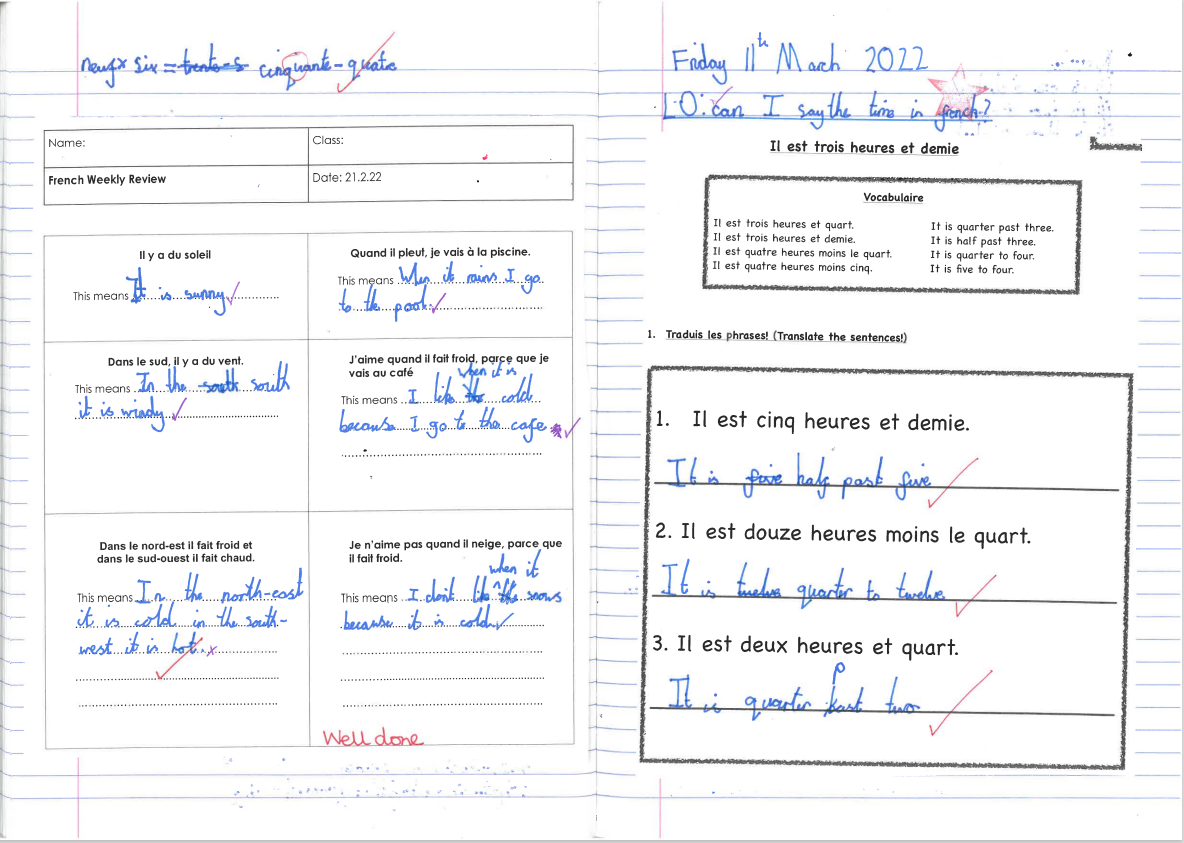 neuf x six = trente-s cinquante-quatre
Name:
Class:
French Weekly Review
Date: 21.2.22
Il y a du soleil
This means It is sunny
Quand il pleut, je vais à la piscine.
This means When it rains I go
to the pool.
Dans le sud, il y a du vent.
This means In the south south
it is windy
J'aime quand il fait froid, parce que je
vais au café
when it is
This means I like the cold
because I go to the cafe
Dans le nord-est il fait froid et
dans le sud-ouest il fait chaud.
This means In the north-east
it is cold in the south-
west it is hot.
Je n'aime pas quand il neige, parce que
il fait froid.
when it
This means I dont like the snows
because it is cold.
Well done
Friday 11th March 2022
L.O: can I say the time in french?
Il est trois heures et demie
Vocabulaire
Il est trois heures et quart. It is quarter past three.
Il est trois heures et demie. It is half past three.
Il est quatre heures moins le quart. It is quarter to four.
Il est quatre heures moins cinq. It is five to four.
1. Traduis les phrases! (Translate the sentences!)
1. Il est cinq heures et demie.
It is five half past five
2. Il est douze heures moins le quart.
It is twelve quarter to twelve
3. Il est deux heures et quart.
p
It is quarter past two